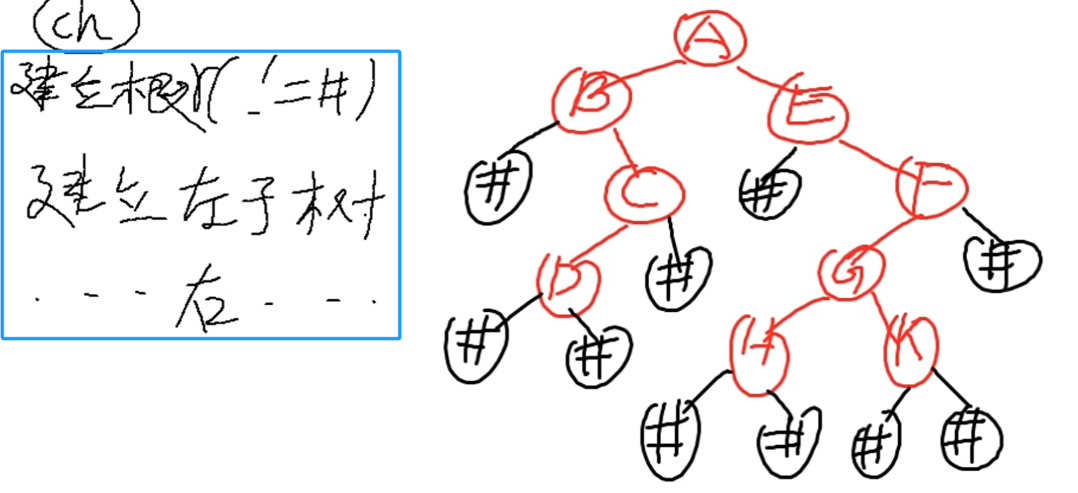 ch
建立根(!=#)
建立左子树
...右...
A
B E
# C # F
D # G #
# # H K
# # # #